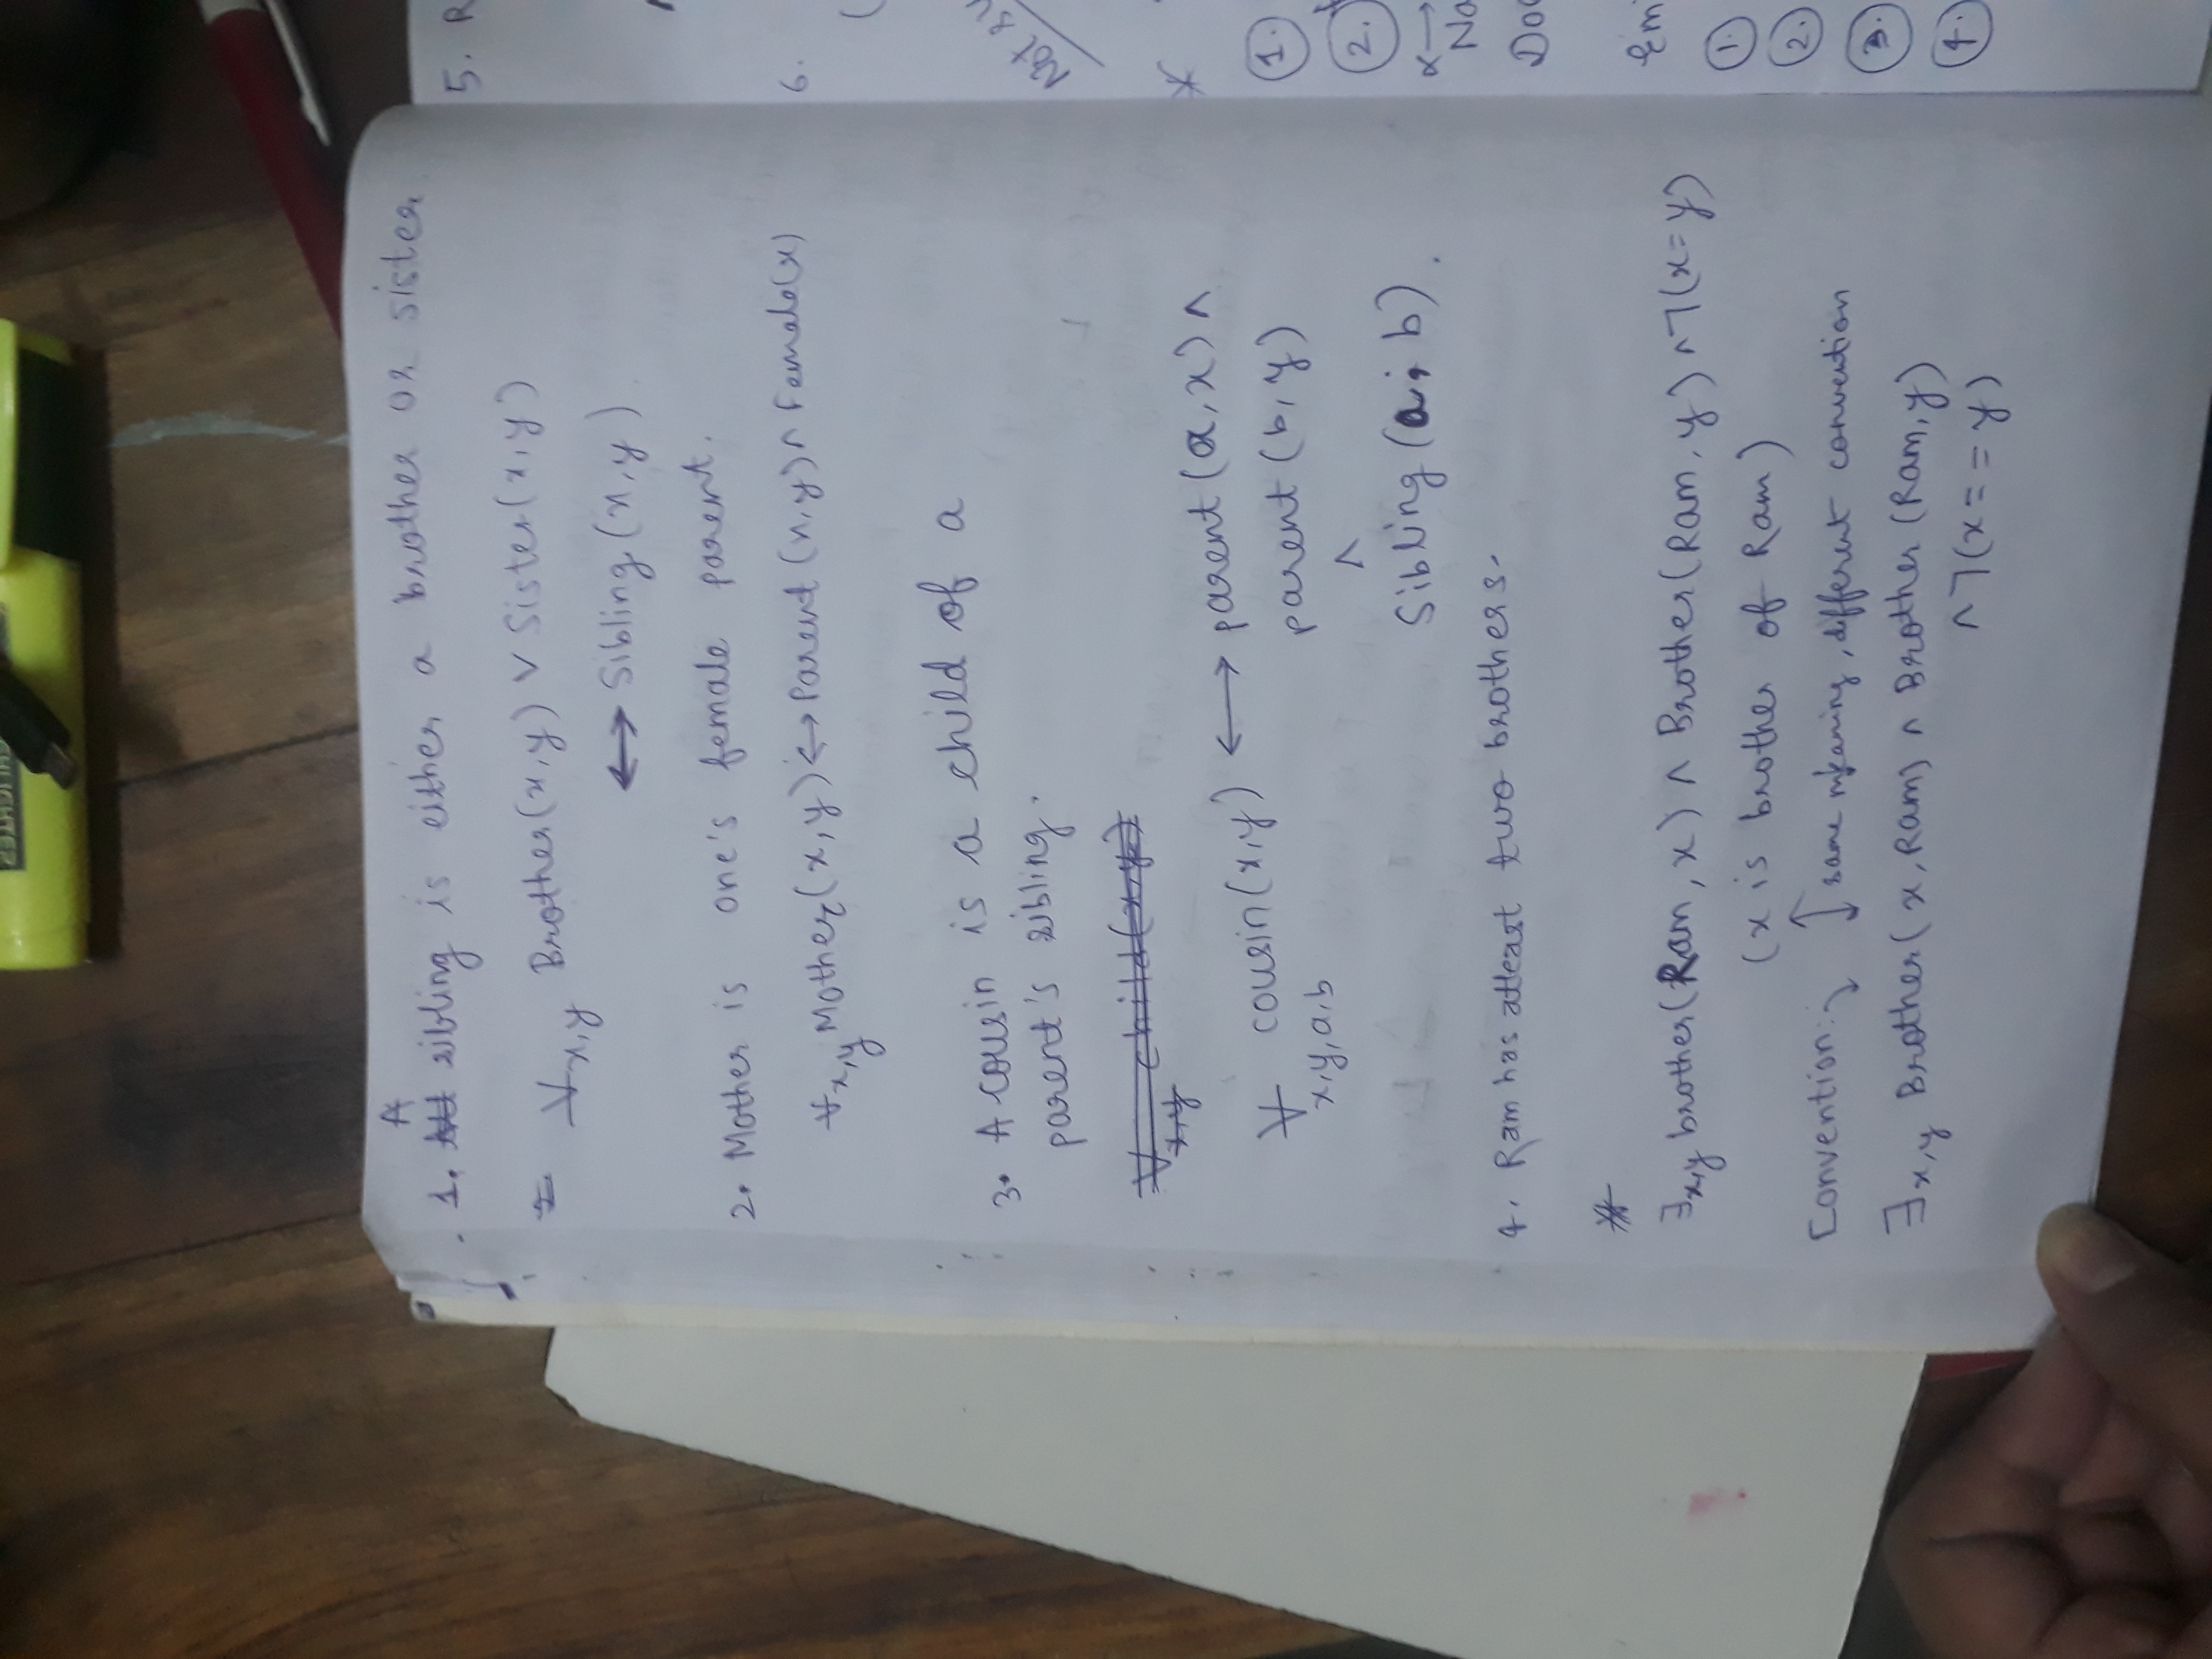 1. A sibling is either a brother or sister
∀x,y Brother(x,y) ∨ Sister(x,y)
↔ Sibling(x,y)
2. Mother is one's female parent.
∀x,y Mother(x,y) ↔ Parent(x,y) ∧ Female(x)
3. A cousin is a child of a
parent's sibling.
∀ child(x,y)
x,y
∀ cousin(x,y) ↔ parent(a,x) ∧
x,y,a,b
parent(b,y)
∧
Sibling(a,b).
4. Ram has atleast two brothers.
∃x,y brother(Ram,x) ∧ Brother(Ram,y) ∧ ¬(x=y)
(x is brother of Ram)
Convention:
↕ same meaning, different convention
∃x,y Brother(x,Ram) ∧ Brother(Ram,y)
∧ ¬(x==y)
5. R
6.
(
Not
*
1.
2.
α →
No
Do
1.
2.
3.
4.